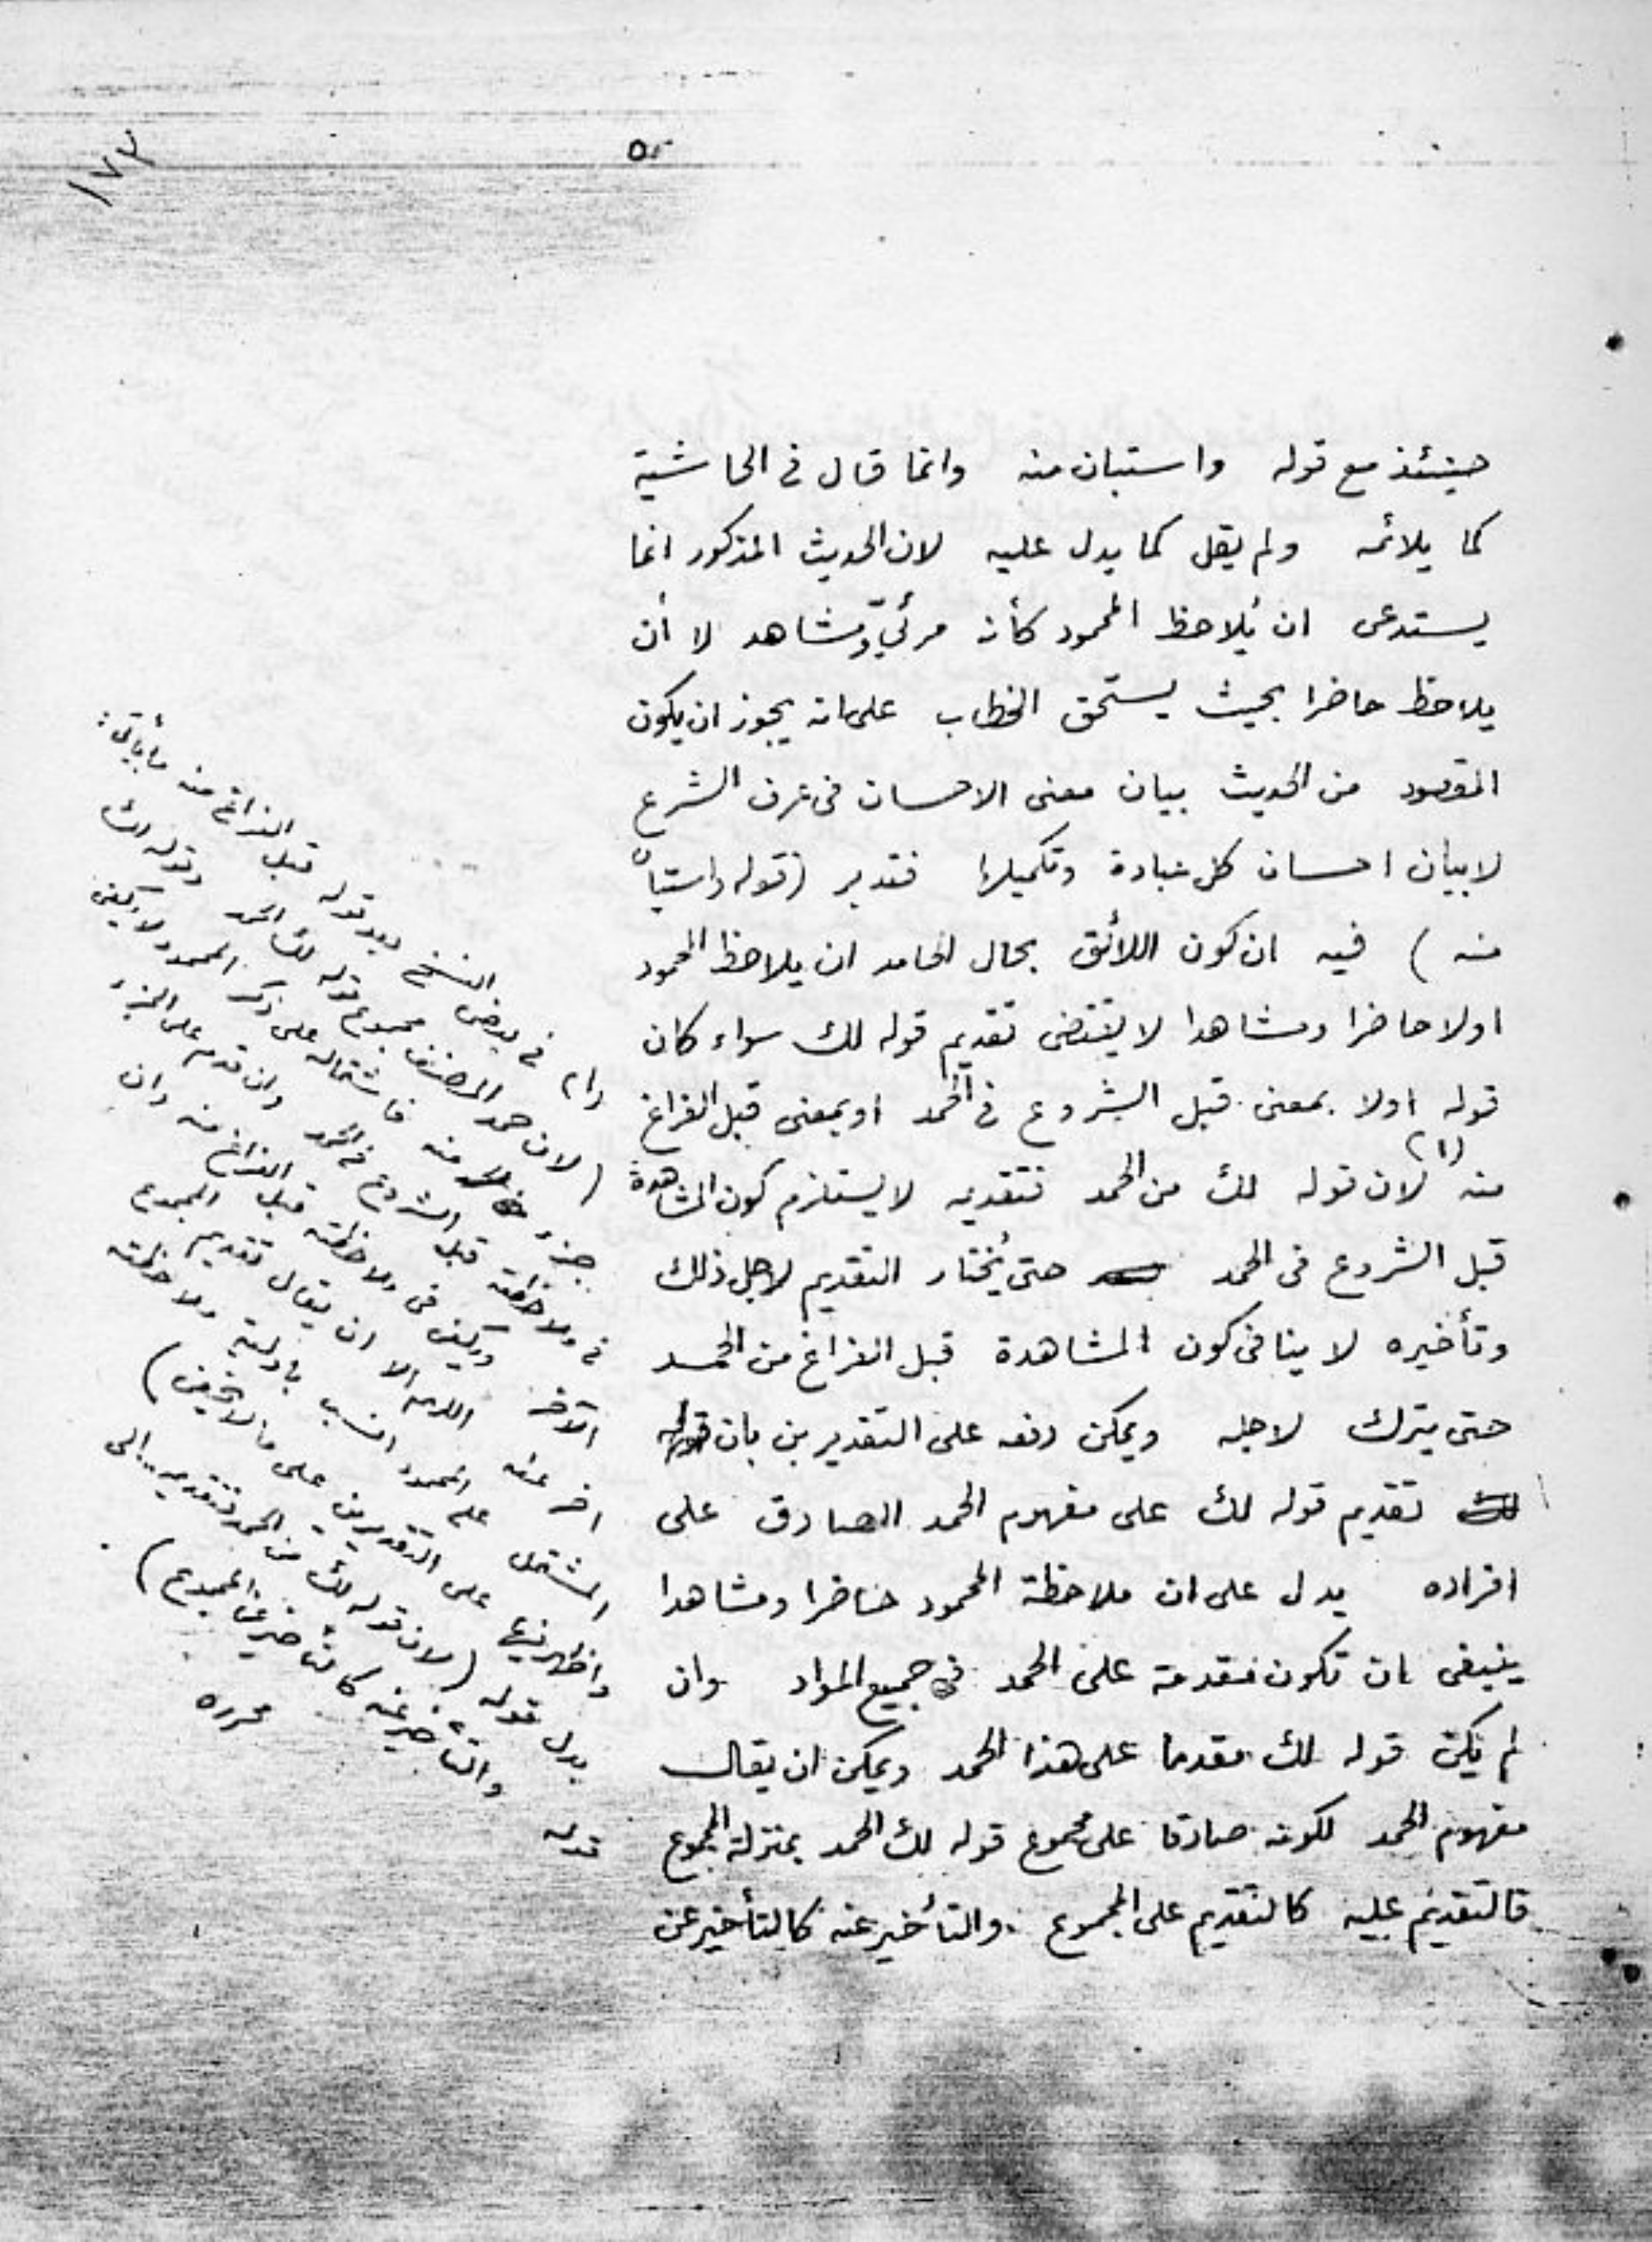 ١٧٣
٥٢
حينئذ مع قوله واستبان منه وانما قال فى الحاشية
كما يلائمه ولم يقل كما يدل عليه لان الحديث المذكور انما
يستدعى ان يُلاحظ المحمود كأنه مرئيّ ومشاهد لا أن
يلاحظ حاضرا بحيث يستحق الخطاب على انه يجوز ان يكون
المقصود من الحديث بيان معنى الاحسان فى عرف الشرع
لا بيان احسان كل عبادة وتكميلها فتدبر (قوله واستبان
منه) فيه ان كون اللائق بحال الحامد ان يلاحظ المحمود
اولا حاضرا ومشاهدا لا يقتضى تقديم قوله لك سواء كان
قوله اولا بمعنى قبل الشروع فى الحمد او بمعنى قبل الفراغ
منه (١) لان قوله لك من الحمد فتقديمه لا يستلزم كون المشاهدة
قبل الشروع فى الحمد حتى يُختار التقديم لاجل ذلك
وتأخيره لا ينافى كون المشاهدة قبل الفراغ من الحمد
حتى يترك لاجله ويمكن دفعه على التقديرين بان
تقديم قوله لك على مفهوم الحمد الصادق على
افراده يدل على ان ملاحظة المحمود حاضرا ومشاهدا
ينبغى ان تكون مقدمة على الحمد فى جميع المواد وان
لم يكن قوله لك مقدما على هذا الحمد ويمكن ان يقال
مفهوم الحمد لكونه صادقا على مجموع قوله لك الحمد بمنزلة المجموع
فالتقديم عليه كالتقديم على المجموع والتأخير عنه كالتأخير عن
(١) فى بعض النسخ بعد قوله قبل الفراغ منه ما يأتى:
(لان حمد المصنف مجموع قوله لك الحمد وقوله لك
جزء منه فاشتماله على ذكر المحمود لا يكفى
فى ملاحظته قبل الشروع فى الحمد وان قدم على الجزء
الآخر ويكفى فى ملاحظته قبل الفراغ منه وان
اخر عنه اللهم الا ان يقال تقديم المجموع
المشتمل على المحمود انسب باولية ملاحظته
على التقديرين على ما لا يخفى)
بدل قوله (لان قوله لك من الحمد فتقديمه..الى
قوله والتأخير عنه كالتأخير عن المجموع)
محرره